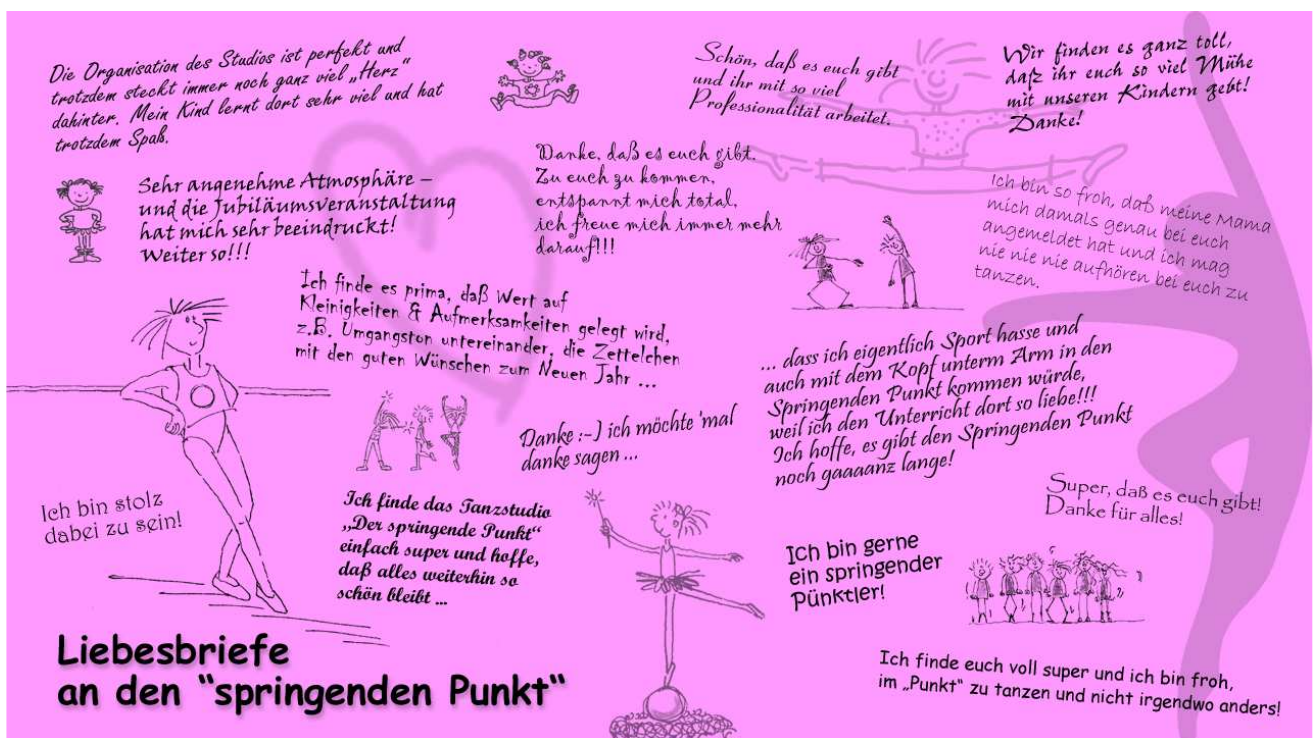 Die Organisation des Studios ist perfekt und
trotzdem steckt immer noch ganz viel „Herz“
dahinter. Mein Kind lernt dort sehr viel und hat
trotzdem Spaß.
Schön, daß es euch gibt
und ihr mit so viel
Professionalität arbeitet.
Wir finden es ganz toll,
daß ihr euch so viel Mühe
mit unseren Kindern gebt!
Danke!
Sehr angenehme Atmosphäre –
und die Jubiläumsveranstaltung
hat mich sehr beeindruckt!
Weiter so!!!
Danke, daß es euch gibt.
Zu euch zu kommen,
entspannt mich total,
ich freue mich immer mehr
darauf!!!
Ich bin so froh, daß meine Mama
mich damals genau bei euch
angemeldet hat und ich mag
nie nie nie aufhören bei euch zu
tanzen.
Ich finde es prima, daß Wert auf
Kleinigkeiten & Aufmerksamkeiten gelegt wird,
z.B. Umgangston untereinander, die Zettelchen
mit den guten Wünschen zum Neuen Jahr ...
... dass ich eigentlich Sport hasse und
auch mit dem Kopf unterm Arm in den
Springenden Punkt kommen würde,
weil ich den Unterricht dort so liebe!!!
Ich hoffe, es gibt den Springenden Punkt
noch gaaaanz lange!
Danke :-) ich möchte 'mal
danke sagen ...
Ich bin stolz
dabei zu sein!
Ich finde das Tanzstudio
„Der springende Punkt“
einfach super und hoffe,
daß alles weiterhin so
schön bleibt ...
Super, daß es euch gibt!
Danke für alles!
Ich bin gerne
ein springender
Pünktler!
Ich finde euch voll super und ich bin froh,
im „Punkt“ zu tanzen und nicht irgendwo anders!
Liebesbriefe
an den “springenden Punkt“